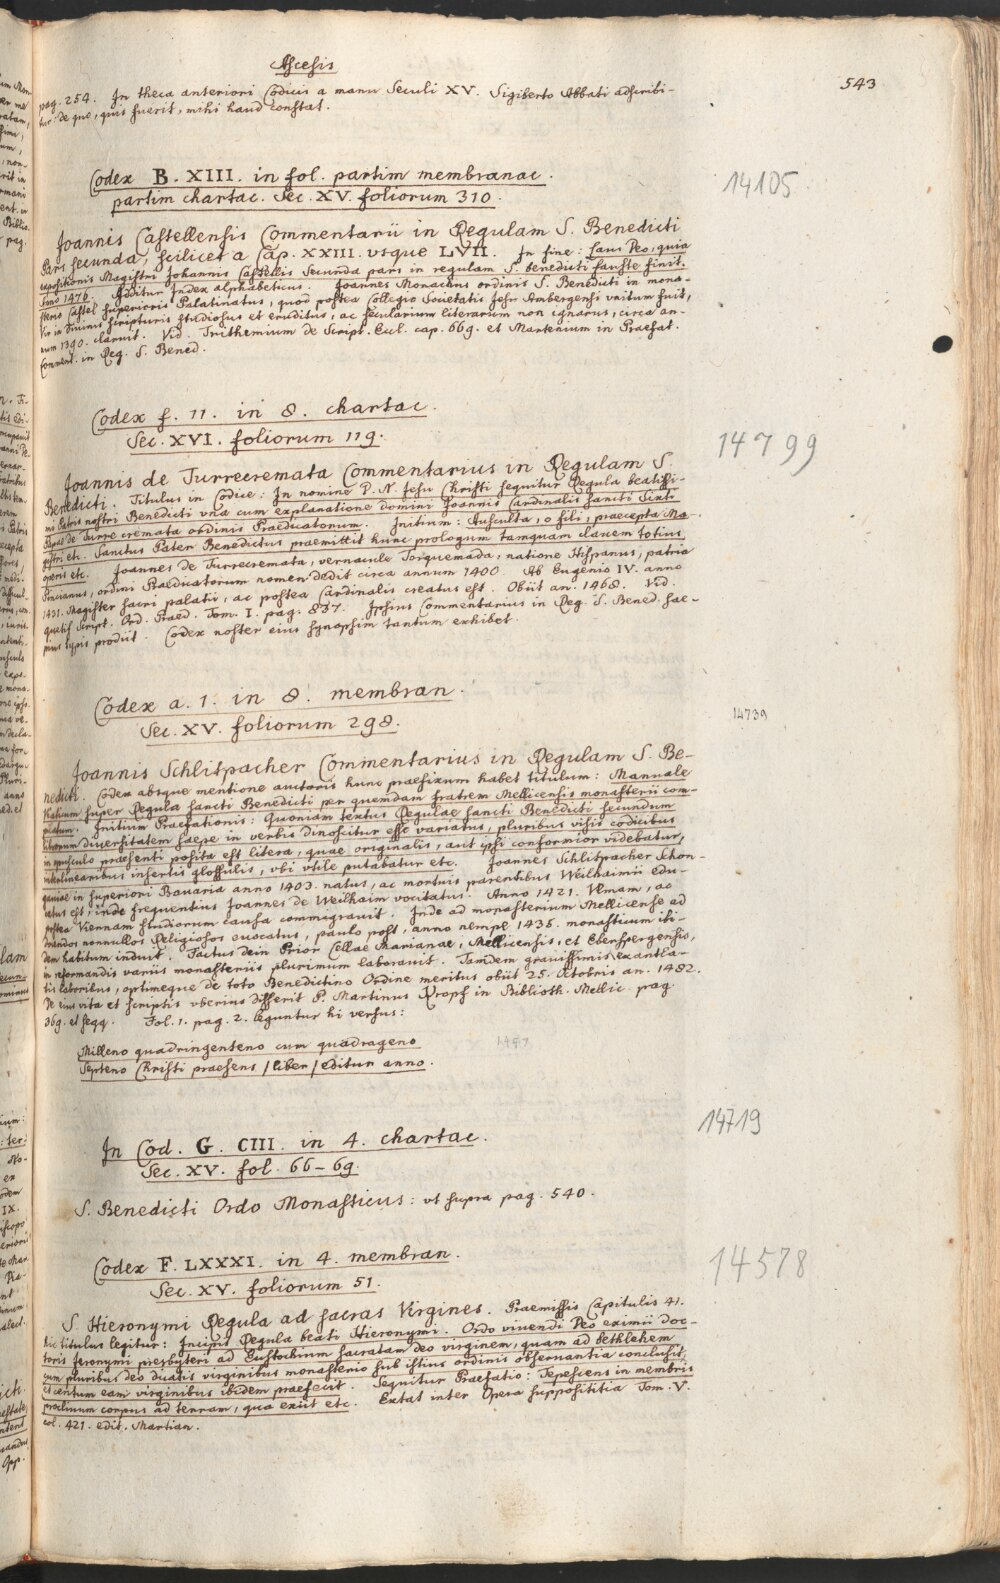 Ascesis
543
pag. 254. In theca anteriori Codicis a manu Seculi XV. Sigiberto Abbati adscribi-
tur: de quo, quis fuerit, mihi haud constat.
Codex B. XIII. in fol. partim membranac.
partim chartac. Sec. XV. foliorum 310.
14105
Joannis Castellensis Commentarii in Regulam S. Benedicti
Pars secunda, scilicet a Cap. XXIII. vsque LVII. In fine: Laus Deo, quia
expositionis Magistri Johannis Castellis Secunda pars in regulam S. benedicti fauste finit.
Anno 1476. Additur Index alphabeticus. Joannes Monachus ordinis S. Benedicti in mona-
sterio Castel superioris Palatinatus, quod postea Collegio Societatis Jesu Ambergensi vnitum fuit,
Vir in Divinis Scripturis studiosus et eruditus, ac secularium literarum non ignarus, circa an-
num 1390. claruit. Vid. Trithemium de Script. Eccl. cap. 669. et Martenium in Praefat.
Comment. in Reg. S. Bened.
Codex f. 11. in 8. chartac.
Sec. XVI. foliorum 119.
14799
Joannis de Turrecremata Commentarius in Regulam S.
Benedicti. Titulus in Codice: In nomine D. N. Jesu Christi sequitur Regula beatissi-
mi Patris nostri Benedicti vna cum explanatione domini Joannis Cardinalis sancti Sixti
Papae de Turre cremata ordinis Praedicatorum. Initium: Ausculta, o fili, praecepta Ma-
gistri etc. Sanctus Pater Benedictus praemittit hunc prologum tamquam clavem totius
operis etc. Joannes de Turrecremata, vernacule Torquemada, natione Hispanus, patria
Pincianus, ordini Praedicatorum nomen dedit circa annum 1400. Ab Eugenio IV. anno
1431. Magister sacri palatii, ac postea Cardinalis creatus est. Obiit an. 1468. Vid.
Quetif Script. Ord. Praed. Tom. I. pag. 837. Ipsius Commentarius in Reg. S. Bened. sae-
pius typis prodiit. Codex noster eius synopsim tantum exhibet.
Codex a. 1. in 8. membran.
Sec. XV. foliorum 298.
14739
Joannis Schlitpacher Commentarius in Regulam S. Be-
nedicti. Codex absque mentione auctoris hunc praefixum habet titulum: Mannale
viaticum super Regula sancti Benedicti per quemdam fratrem Mellicensis monasterii com-
pilatum. Initium Praefationis: Quoniam textus Regulae sancti Benedicti secundum
librorum diversitatem saepe in verbis dinoscitur esse variatus, pluribus visis codicibus
in opusculo praesenti posita est litera, quae originalis, aut ipsi conformior videbatur,
interlinearibus insertis glossulis, vbi vtile putabatur etc. Joannes Schlitpacher Schon-
gaviae in superiori Bavaria anno 1403. natus, ac mortuis parentibus Weilhaimii edu-
catus est, inde frequentius Joannes de Weilhaim vocitatus. Anno 1421. Vlmam, ac
postea Viennam studiorum causa commigravit. Inde ad monasterium Mellicense ad
nonnullos Religiosos evocatus, paulo post, anno nempe 1435. monasticum ibi-
dem habitum induit. Factus dein Prior Cellae Marianae, Mellicensis, et Eberspergensis,
in reformandis variis monasteriis plurimum laboravit. Tamdem gravissimis exantla-
tis laboribus, optimeque de toto Benedictino Ordine meritus obiit 25. Octobris an. 1482.
De eius vita et scriptis vberius disserit P. Martinus Kropf in Biblioth. Mellic. pag.
369. et seqq. Fol. 1. pag. 2. leguntur hi versus:
Milleno quadringenteno cum quadrageno
1447
Septeno Christi praesens /liber/ editur anno.
In Cod. G. CIII. in 4. chartac.
Sec. XV. fol. 66-69.
14719
S. Benedicti Ordo Monasticus: vt supra pag. 540.
Codex F. LXXXI. in 4. membran.
Sec. XV. foliorum 51.
14578
S. Hieronymi Regula ad sacras Virgines. Praemissis Capitulis 41.
hic titulus legitur: Incipit Regula beati Hieronymi. Ordo vivendi Deo eximii doc-
toris Jeronymi presbyteri ad Eustochium sacratam deo virginem, quam ad bethlehem
cum pluribus deo dicatis virginibus monasterio sub istius ordinis observantia conclusit,
et centum eam virginibus ibidem praefecit. Sequitur Praefatio: Tepescens in membris
proclinum corpus ad terram, qua exiit etc. Extat inter Opera supposititia Tom. V.
col. 421. edit. Martian.